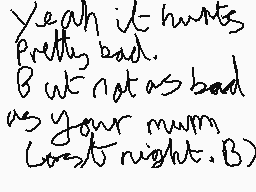 Yeah it hurts
pretty bad.
But not as bad
as your mum
Last night. B)